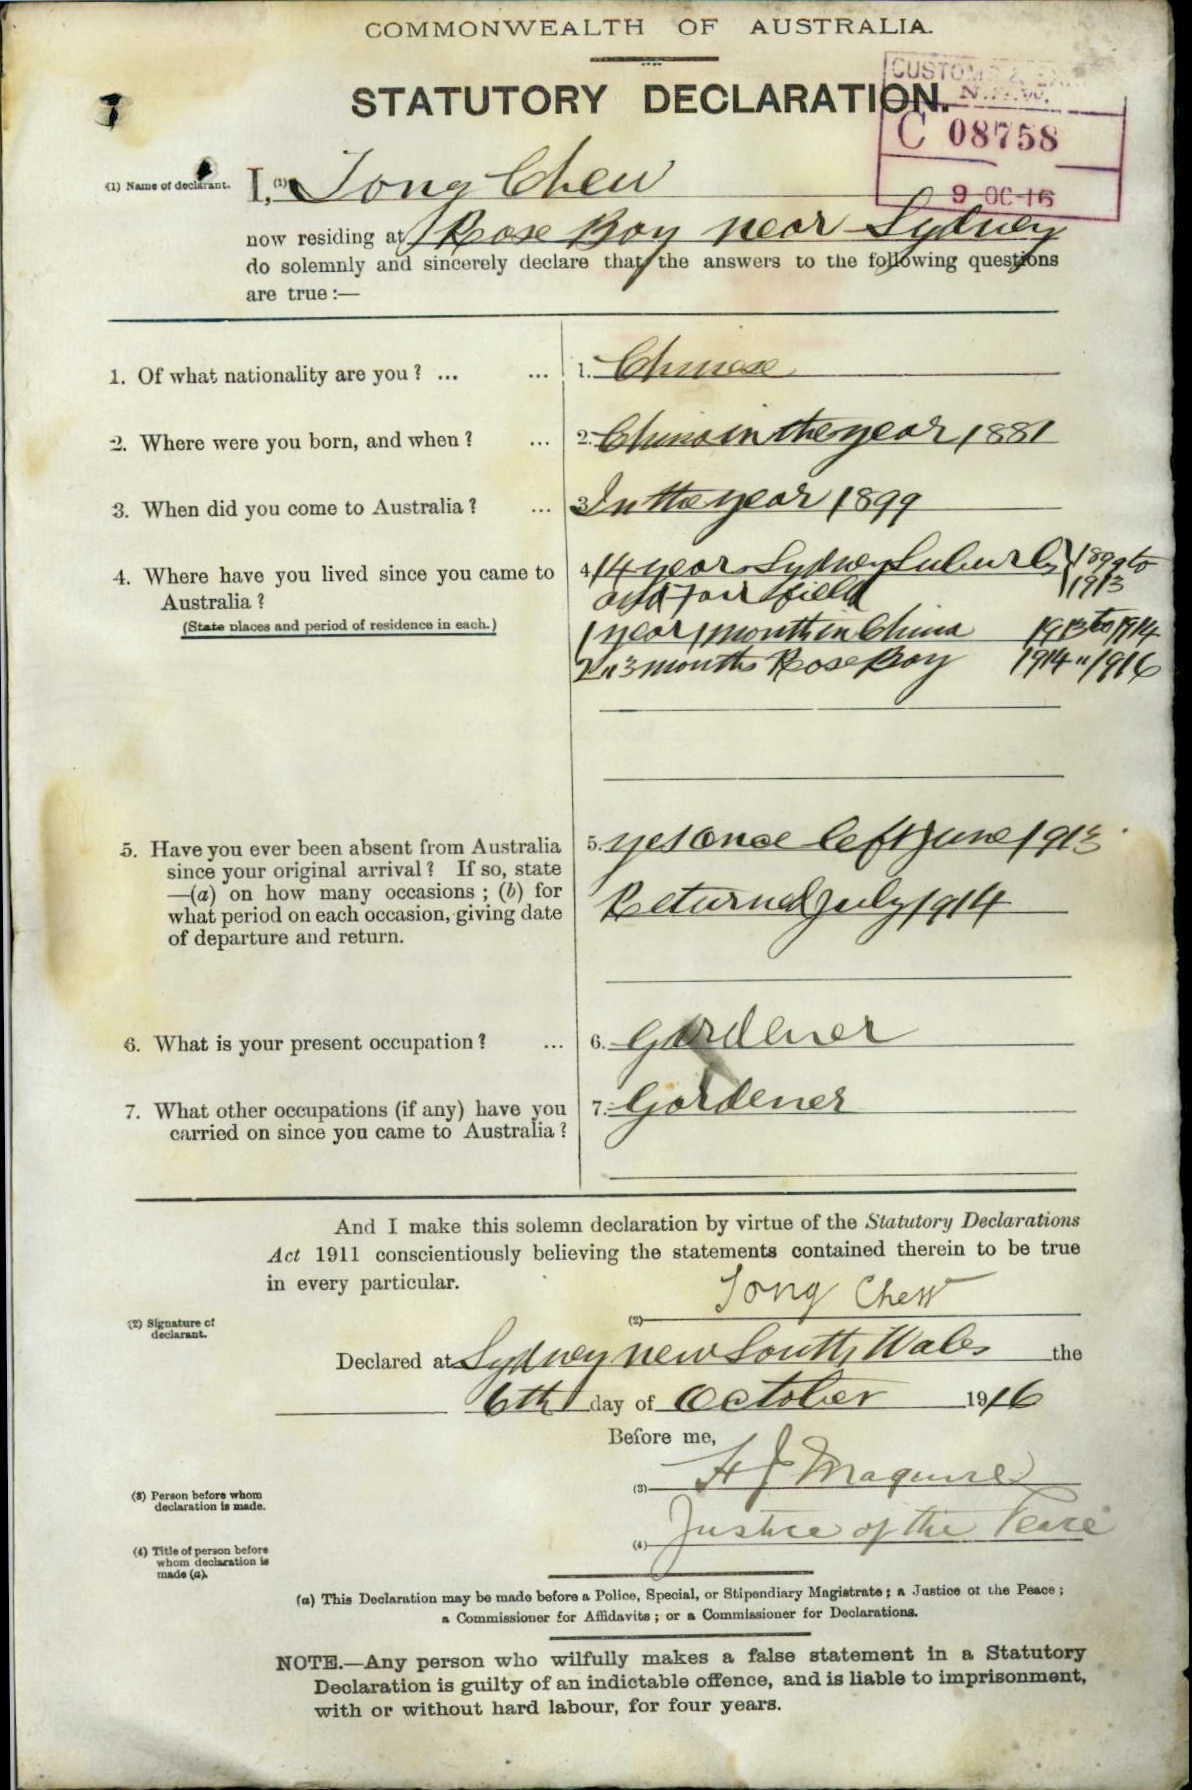 COMMONWEALTH OF AUSTRALIA.
STATUTORY DECLARATION.
CUSTOMS & EX
N.S.W.
C 08758
9 OC 16
(1) Name of declarant. I, (1) Tong Chew
now residing at Rose Bay near Sydney
do solemnly and sincerely declare that the answers to the following questions
are true :—
1. Of what nationality are you ? ... ... 1. Chinese
2. Where were you born, and when ? ... 2. China in the year 1881
3. When did you come to Australia ? ... 3. In the year 1899
4. Where have you lived since you came to 4. 14 years Sydney Suburbs } 1899 to
Australia ? and Fairfield 1913
(State places and period of residence in each.) 1 year 1 month in China 1913 to 1914
2 " 3 months Rose Bay 1914 " 1916
5. Have you ever been absent from Australia 5. yes once left June 1913
since your original arrival ? If so, state
—(a) on how many occasions ; (b) for Returned July 1914
what period on each occasion, giving date
of departure and return.
6. What is your present occupation ? ... 6. Gardener
7. What other occupations (if any) have you 7. Gardener
carried on since you came to Australia ?
And I make this solemn declaration by virtue of the Statutory Declarations
Act 1911 conscientiously believing the statements contained therein to be true
in every particular.
(2) Signature of
declarant.
(2) Tong Chew
Declared at Sydney New South Wales the
6th day of October 1916
Before me,
(3) Person before whom
declaration is made.
(3) H J Maguire
(4) Title of person before
whom declaration is
made (a).
(4) Justice of the Peace
(a) This Declaration may be made before a Police, Special, or Stipendiary Magistrate ; a Justice of the Peace ;
a Commissioner for Affidavits ; or a Commissioner for Declarations.
NOTE.—Any person who wilfully makes a false statement in a Statutory
Declaration is guilty of an indictable offence, and is liable to imprisonment,
with or without hard labour, for four years.